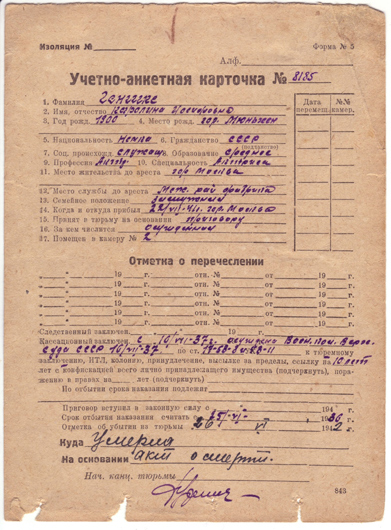 Изоляция № Форма № 5
Алф.
Учетно-анкетная карточка № 8185
1. Фамилия Генишке
2. Имя, отчество Каролина Иосифовна
3. Год рожд. 1900 4. Место рожд. гор. Мюнхен
Дата перемещ. №№ камер.
5. Национальность немка 6. Гражданство СССР
(подданство)
7. Соц. происхожд. служащ. 8. Образование среднее
9. Профессия 10. Специальность Актриса
11. Место жительства до ареста гор Москва
12. Место службы до ареста Моск. рай
13. Семейное положение замужняя
14. Когда и откуда прибыл 22/VII-41г. гор. Москва
15. Принят в тюрьму на основании приговору
16. За кем числится осужденная
17. Помещен в камеру № 2
Отметка о перечислении
„ “ 19 г. отн. № от „ “ 19 г.
„ “ 19 г. отн. № от „ “ 19 г.
„ “ 19 г. отн. № от „ “ 19 г.
„ “ 19 г. отн. № от „ “ 19 г.
„ “ 19 г. отн. № от „ “ 19 г.
Следственный заключен. 19 г.
Кассационный заключен. с 10/VII-37г. осужден Воен.
суда СССР 10/VII-37 по ст. к тюремному
заключению, ИТЛ, колонию, принудлечение, высылке, за пределы, ссылку на 10 лет
лет с конфискацией всего лично принадлежащего имущества (подчеркнуть), пора-
жение в правах на лет (подчеркнуть)
По отбытии срока наказания подлежит
Приговор вступил в законную силу с 194 г.
Срок отбытия наказания считать с 25/-VI- 1936 г.
Отметка об убытии из тюрьмы 26 VI 1942 г.
Куда Умерла
На основании акт о смерти.
Нач. канц. тюрьмы
843